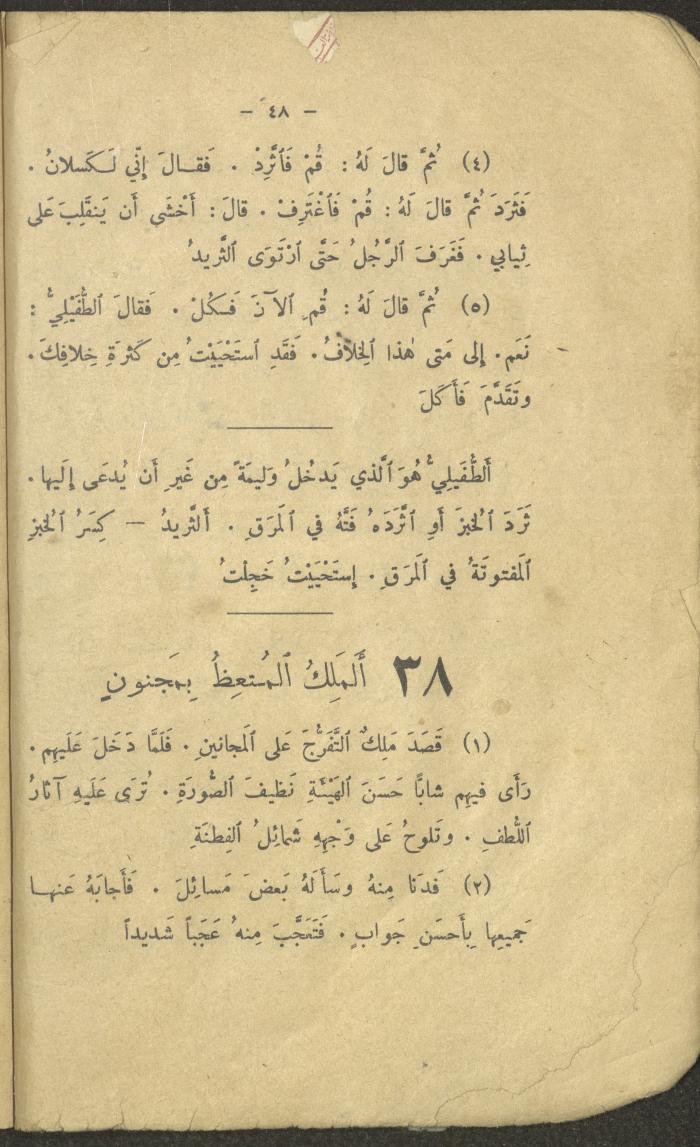 – ٤٨ –
(٤) ثُمَّ قالَ لَهُ : قُمْ فَٱثَّرِدْ . فَقــالَ إِنّي لَـكَسلانُ .
فَثَرَدَ ثُمَّ قالَ لَهُ : قُمْ فَٱغْتَرِفْ . قالَ : أَخْشَى أَن يَنقَلِبَ عَلى
ثِيابي . فَغَرَفَ ٱلرَّجُلُ حَتَّى ٱرْتَوَى ٱلثَّريدُ
(٥) ثُمَّ قالَ لَهُ : قُمِ ٱلآنَ فَـكُلْ . فَقالَ ٱلطُّفَيْلِيُّ :
نَعَم . إِلى مَتى هٰذا ٱلخِلافُ . فَقَدِ ٱستَحْيَيْتُ مِن كَثرَةِ خِلافِكَ .
وتَقَدَّمَ فَأَكَلَ
أَلطُّفَيلِيُّ هُوَ ٱلَّذي يَدخُلُ وَليمَةً مِن غَيرِ أَن يُدعَى إِلَيها .
ثَرَدَ ٱلخُبزَ أَوِ ٱثَّرَدَهُ فَتَّهُ في ٱلمَرَقِ . أَلثَّريدُ – كِسَرُ ٱلخُبزِ
ٱلمَفتوتَةُ في ٱلمَرَقِ . إِستَحْيَيْتُ خَجِلْتُ
٣٨ أَلمَلِكُ ٱلمُتعِظُ بِمَجنونٍ
(١) قَصَدَ مَلِكٌ ٱلتَّفَرُّجَ عَلى ٱلمَجانينِ . فَلَمَّا دَخَلَ عَلَيهِم .
رَأَى فيهِم شابًّا حَسَنَ ٱلهَيْئَةِ نَظيفَ ٱلصُّورَةِ . تُرَى عَلَيهِ آثارُ
ٱللُّطفِ . وتَلوحُ عَلى وَجْهِهِ شَمائِلُ ٱلفِطنَةِ
(٢) فَدَنا مِنهُ وسَأَلَهُ بَعضَ مَسائِلَ . فَأَجابَهُ عَنهــا
جَميعِها بِأَحسَنِ جَوابٍ . فَتَعَجَّبَ مِنهُ عَجَباً شَديداً